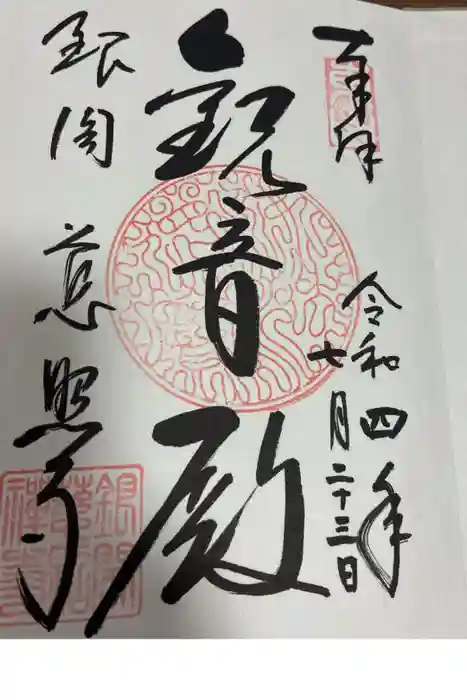 奉拝
令和四年
七月二十三日
観音殿
銀閣 慈照寺